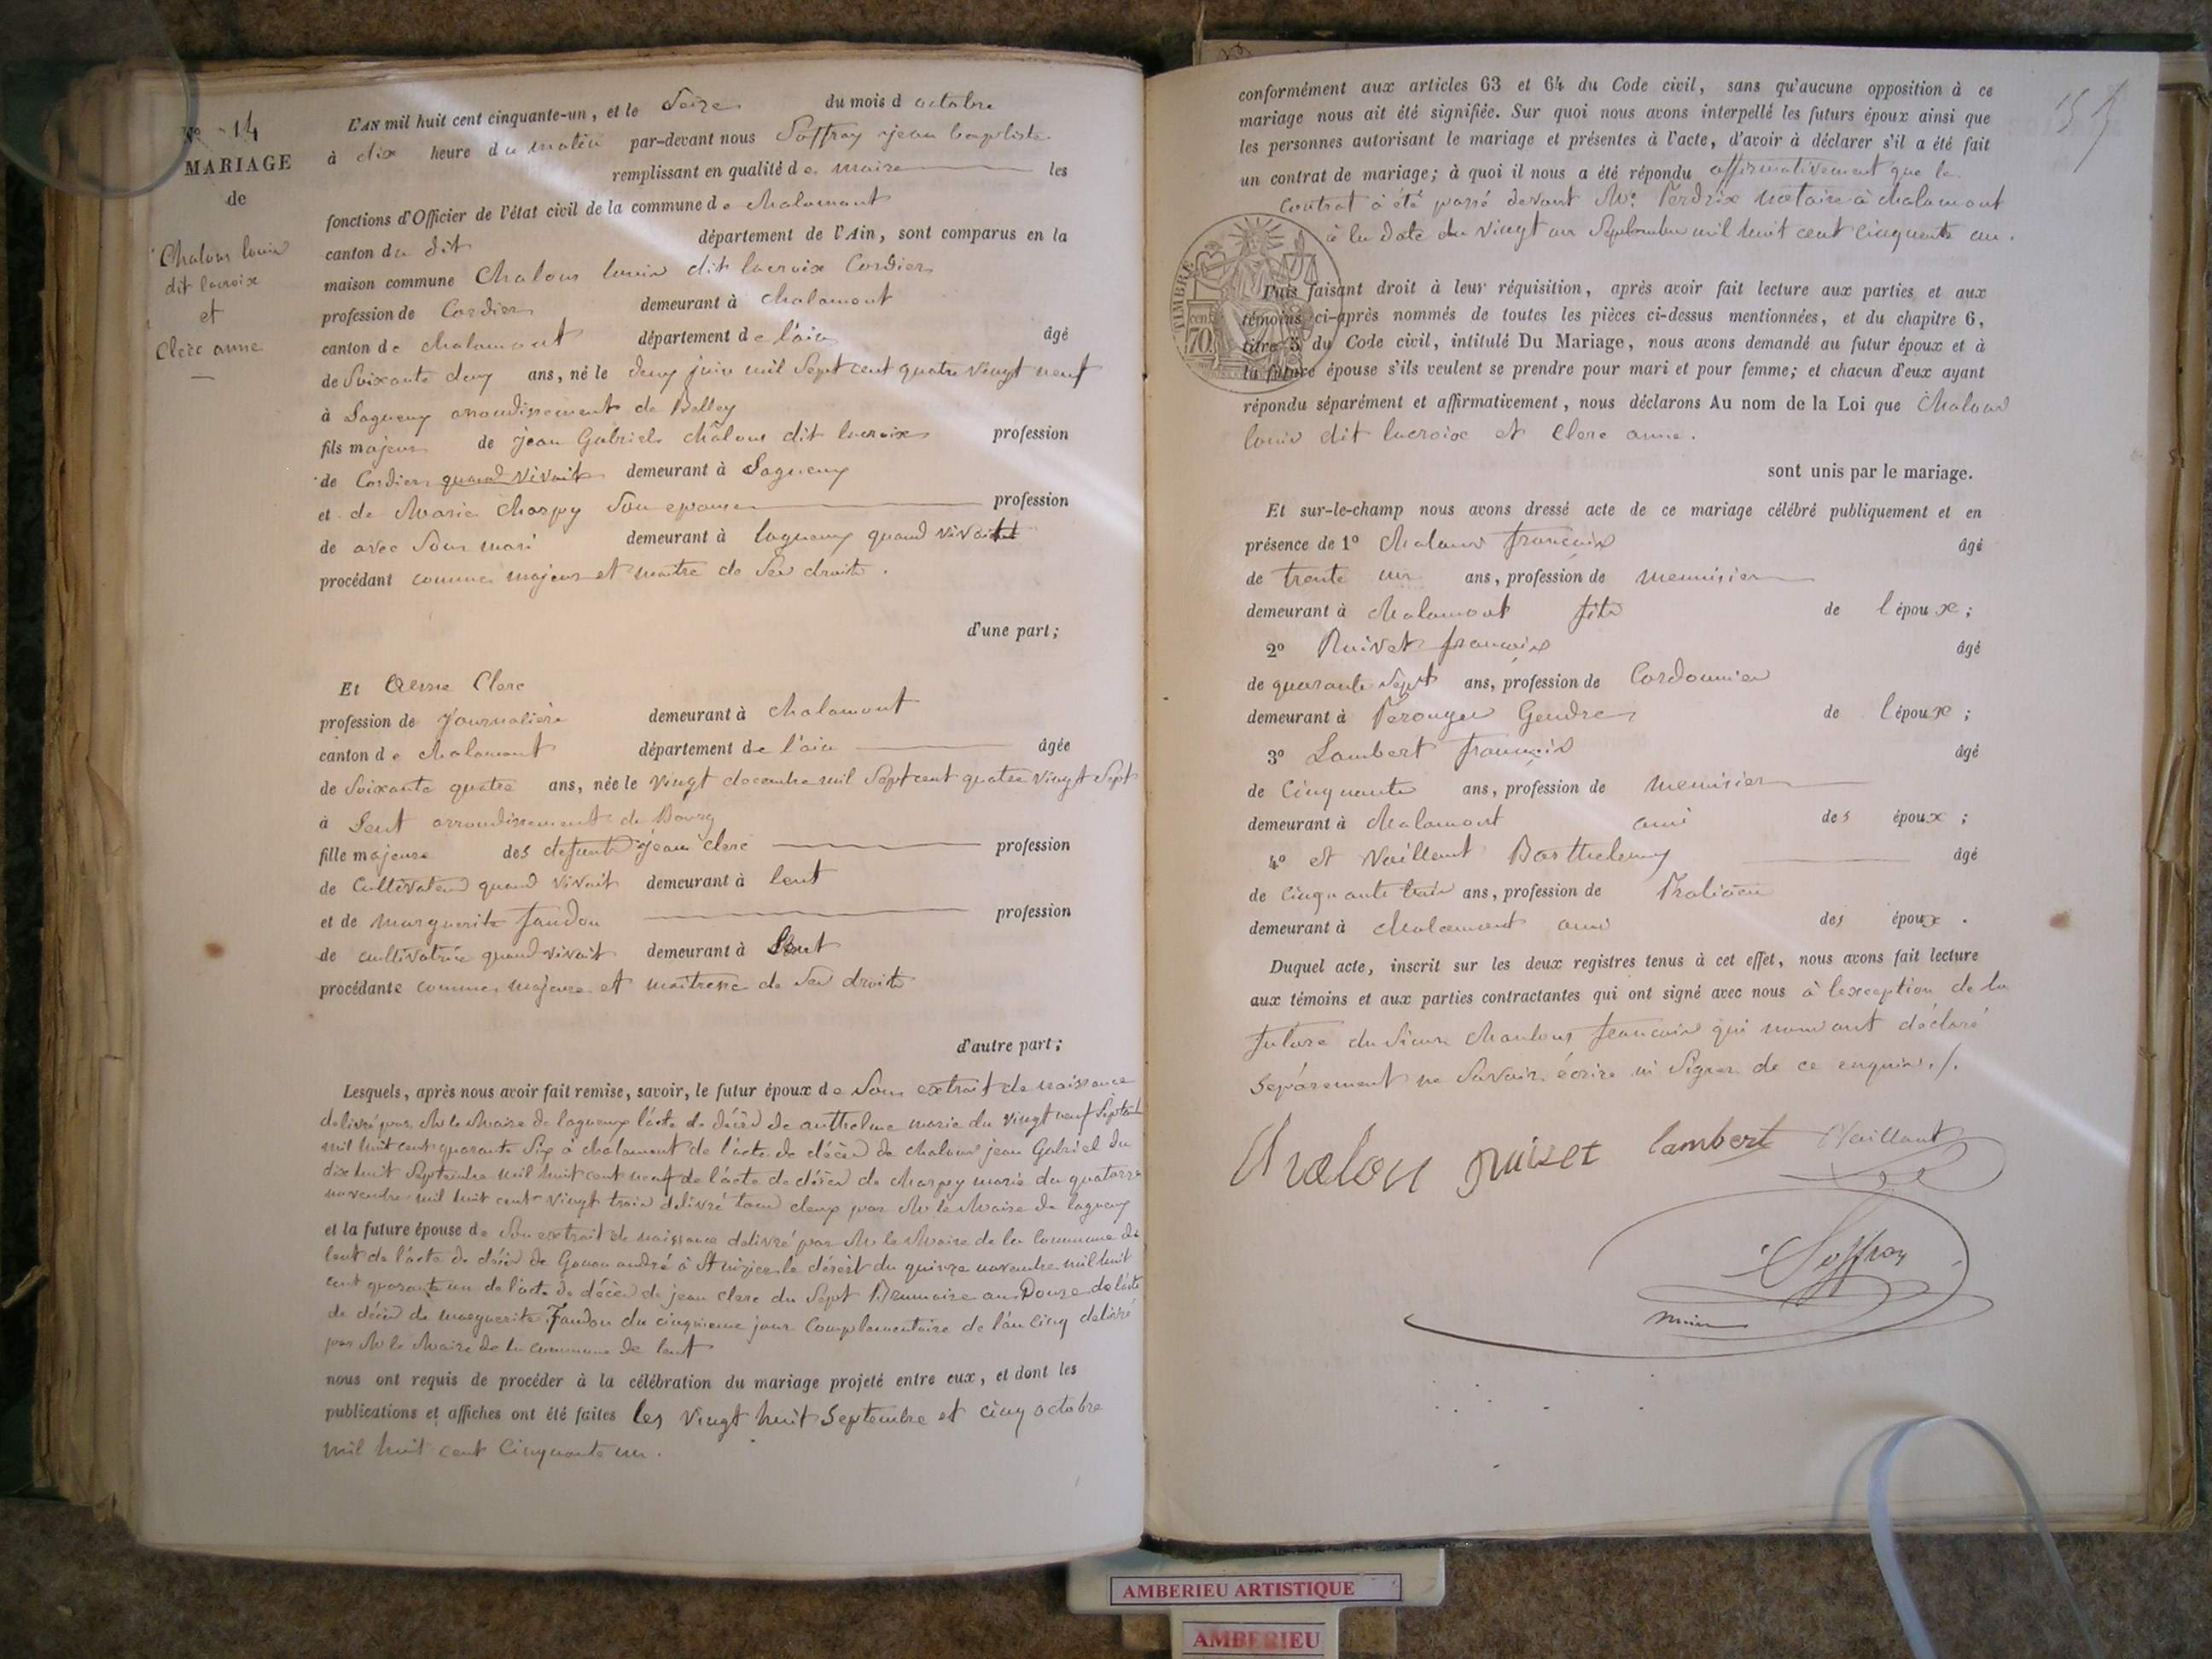 N° 14
MARIAGE
de
Chalons louis
dit lacroix
et
Clerc anne
L'AN mil huit cent cinquante-un, et le Seize du mois d octobre
à dix heure du matin par-devant nous Soffray jean baptiste
remplissant en qualité de maire les
fonctions d'Officier de l'état civil de la commune de chalamont
canton du dit département de l'Ain, sont comparus en la
maison commune Chalons louis dit lacroix Cordier
profession de Cordier demeurant à chalamont
canton de chalamont département de l'ain âgé
de Soixante deux ans, né le deux juin mil Sept cent quatre vingt neuf
à Lagneux arrondissement de Belley
fils majeur de jean Gabriel châlons dit lacroix profession
de Cordier quand vivait demeurant à Lagneux
et de Marie Charpy Son epouse profession
de avec Son mari demeurant à lagneux quand vivait
procédant comme majeur et maitre de Ses droits.
d'une part;
Et Anne Clerc
profession de journalière demeurant à chalamont
canton de chalamont département de l'ain âgée
de Soixante quatre ans, née le vingt decembre mil Sept cent quatre vingt Sept
à Lent arrondissement de Bourg
fille majeure des defunts jean clerc profession
de Cultivateur quand vivait demeurant à lent
et de marguerite fandon profession
de cultivatrice quand vivait demeurant à Lent
procédante comme majeure et maitresse de Ses droits
d'autre part;
Lesquels, après nous avoir fait remise, savoir, le futur époux de Son extrait de naissance
delivré par Mr le Maire de lagneux l'acte de décès de anthelme marie du vingt neuf Septembre
mil huit cent quarante Six à chalamont de l'acte de décès de chalons jean Gabriel du
dix huit Septembre mil huit cent neuf de l'acte de décès de charpy marie du quatorze
novembre mil huit cent vingt trois délivré tous deux par Mr le Maire de lagneux
et la future épouse de Son extrait de naissance delivré par Mr le Maire de la commune de
lent de l'acte de décès de andré à St nizier le désert du quinze novembre mil huit
cent quarante un de l'acte de décès de jean clerc du Sept Brumaire an Douze de l'acte
de décès de marguerite Fandon du cinquieme jour Complementaire de l'an cinq delivré
par Mr le Maire de la commune de lent
nous ont requis de procéder à la célébration du mariage projeté entre eux, et dont les
publications et affiches ont été faites les vingt huit Septembre et cinq octobre
mil huit cent Cinquante un.
conformément aux articles 63 et 64 du Code civil, sans qu'aucune opposition à ce
mariage nous ait été signifiée. Sur quoi nous avons interpellé les futurs époux ainsi que
les personnes autorisant le mariage et présentes à l'acte, d'avoir à déclarer s'il a été fait
un contrat de mariage; à quoi il nous a été répondu affirmativement que le
Contrat à été passé devant Me Perdrix notaire à chalamont
à la date du vingt un Septembre mil huit cent cinquante un.
TIMBRE
cent
70
Puis faisant droit à leur réquisition, après avoir fait lecture aux parties et aux
témoins ci-après nommés de toutes les pièces ci-dessus mentionnées, et du chapitre 6,
titre 5 du Code civil, intitulé Du Mariage, nous avons demandé au futur époux et à
la future épouse s'ils veulent se prendre pour mari et pour femme; et chacun d'eux ayant
répondu séparément et affirmativement, nous déclarons Au nom de la Loi que Chalons
louis dit lacroix et Clerc anne.
sont unis par le mariage.
Et sur-le-champ nous avons dressé acte de ce mariage célébré publiquement et en
présence de 1° Chalons francois âgé
de trente un ans, profession de menuisier
demeurant à chalamont fils de l époux;
2° Ruivet francois âgé
de quarante Sept ans, profession de Cordonnier
demeurant à Perouges Gendre de l époux;
3° Lambert francois âgé
de Cinquante ans, profession de menuisier
demeurant à chalamont ami des époux;
4° et Vaillant Barthelemy âgé
de Cinquante trois ans, profession de
demeurant à chalamont ami des époux.
Duquel acte, inscrit sur les deux registres tenus à cet effet, nous avons fait lecture
aux témoins et aux parties contractantes qui ont signé avec nous à l'exception de la
future du Sieur Chaulons francois qui nous ont déclaré
Séparement ne Savoir écrire ni Signer de ce enquis./.
Chalon ruivet lambert Vaillant
Soffray
maire
AMBERIEU ARTISTIQUE
AMBERIEU